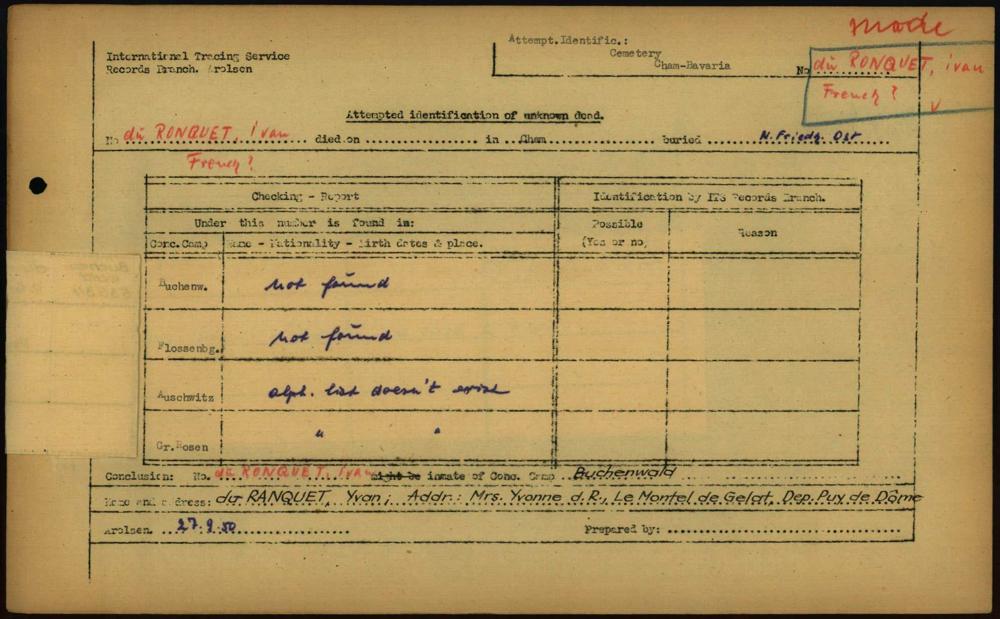 made
International Tracing Service
Records Branch. Arolsen
Attempt.Identific.:
Cemetery
Cham-Bavaria
No du RONQUET, ivan
French?
v
Attempted identification of unknown dead.
No du RONQUET, ivan died on in Cham buried N. Friedh. Ost
French?
Checking - Report
Identification by ITS Records Branch.
Under this number is found in:
Possible
(Yes or no)
Reason
Conc.Camp
Name - Nationality - Birth dates & place.
Buchenw.
not found
Flossenbg.
not found
Auschwitz
alph. list doesn't exist
Gr.Rosen
" "
Conclusion: No. du RONQUET, Ivan might be inmate of Conc. Camp Buchenwald
Name and address: du RANQUET, Yvan; Addr.: Mrs. Yvonne d.R., Le Montel de Gelat, Dep. Puy de Dôme
Arolsen. 27.9.50 Prepared by: